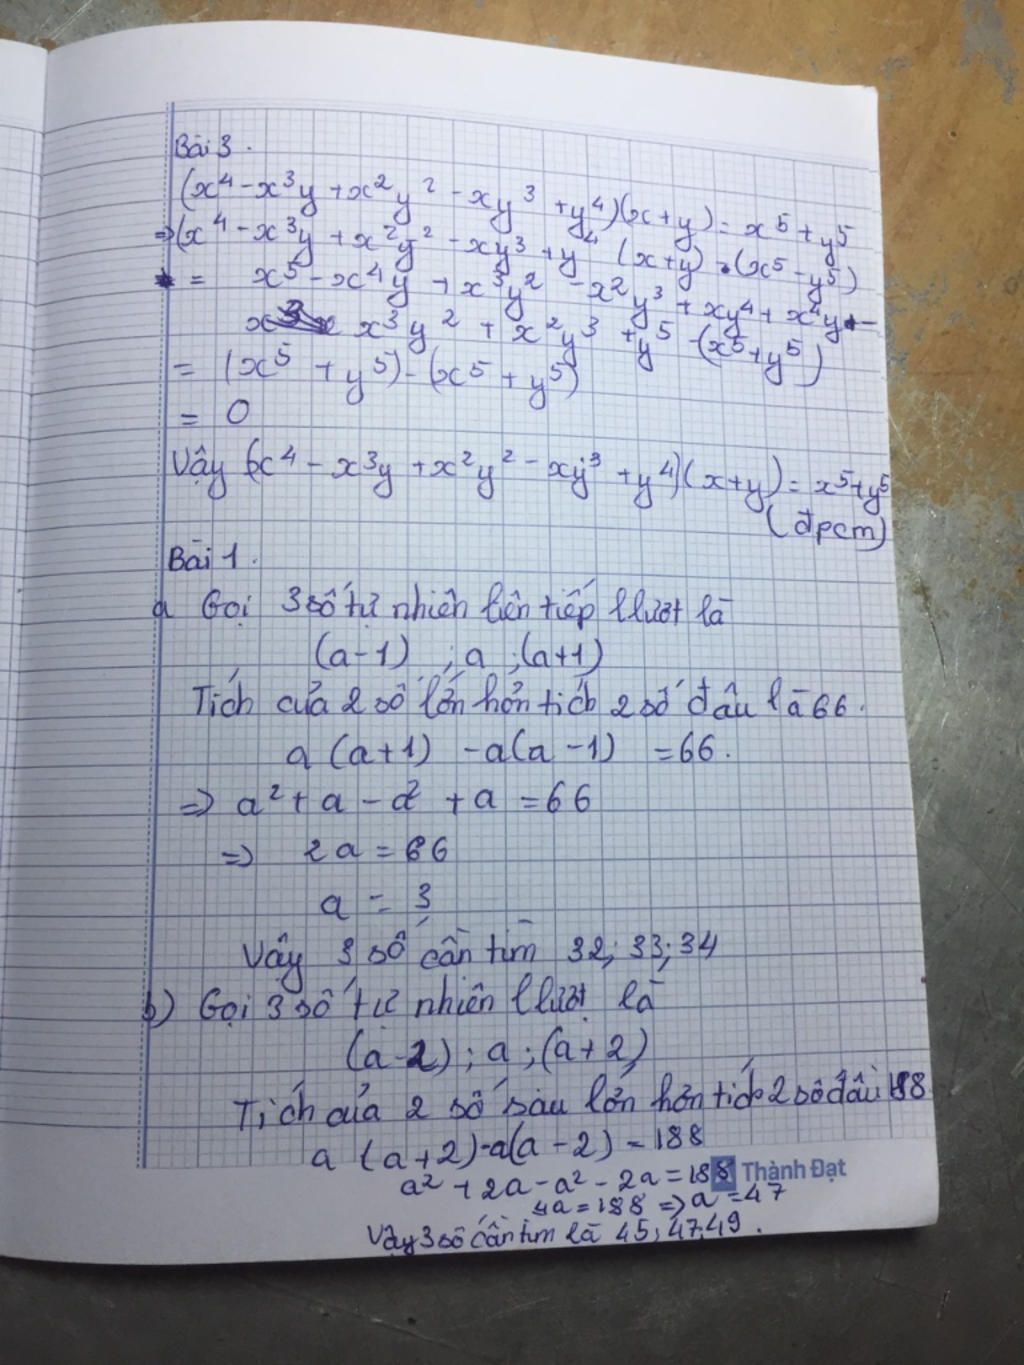 Bài 3.
(x⁴ - x³y + x²y² - xy³ + y⁴)(x+y) = x⁵ + y⁵
⇒ (x⁴ - x³y + x²y² - xy³ + y⁴ (x+y) - (x⁵ - y⁵)
= x⁵ - x⁴y + x³y² - x²y³ + xy⁴ + x⁴y -
x³y² + x²y³ + y⁵ - (x⁵ + y⁵)
= (x⁵ + y⁵) - (x⁵ + y⁵)
= 0
Vậy (x⁴ - x³y + x²y² - xy³ + y⁴)(x+y) = x⁵ + y⁵
(đpcm)
Bài 1.
a Gọi 3 số tự nhiên liên tiếp llượt là
(a-1) ; a ; (a+1)
Tích của 2 số lớn hơn tích 2 số đầu là 66.
a (a+1) - a(a-1) = 66.
⇒ a² + a - a² + a = 66
⇒ 2a = 66
a = 3
Vậy 3 số cần tìm 32; 33; 34
b) Gọi 3 số tự nhiên llượt là
(a-2) ; a ; (a+2)
Tích của 2 số sau lớn hơn tích 2 số đầu 188
a (a+2) - a(a-2) = 188
a² + 2a - a² - 2a = 188 Thành Đạt
4a = 188 ⇒ a = 47
Vậy 3 số cần tìm là 45; 47, 49.